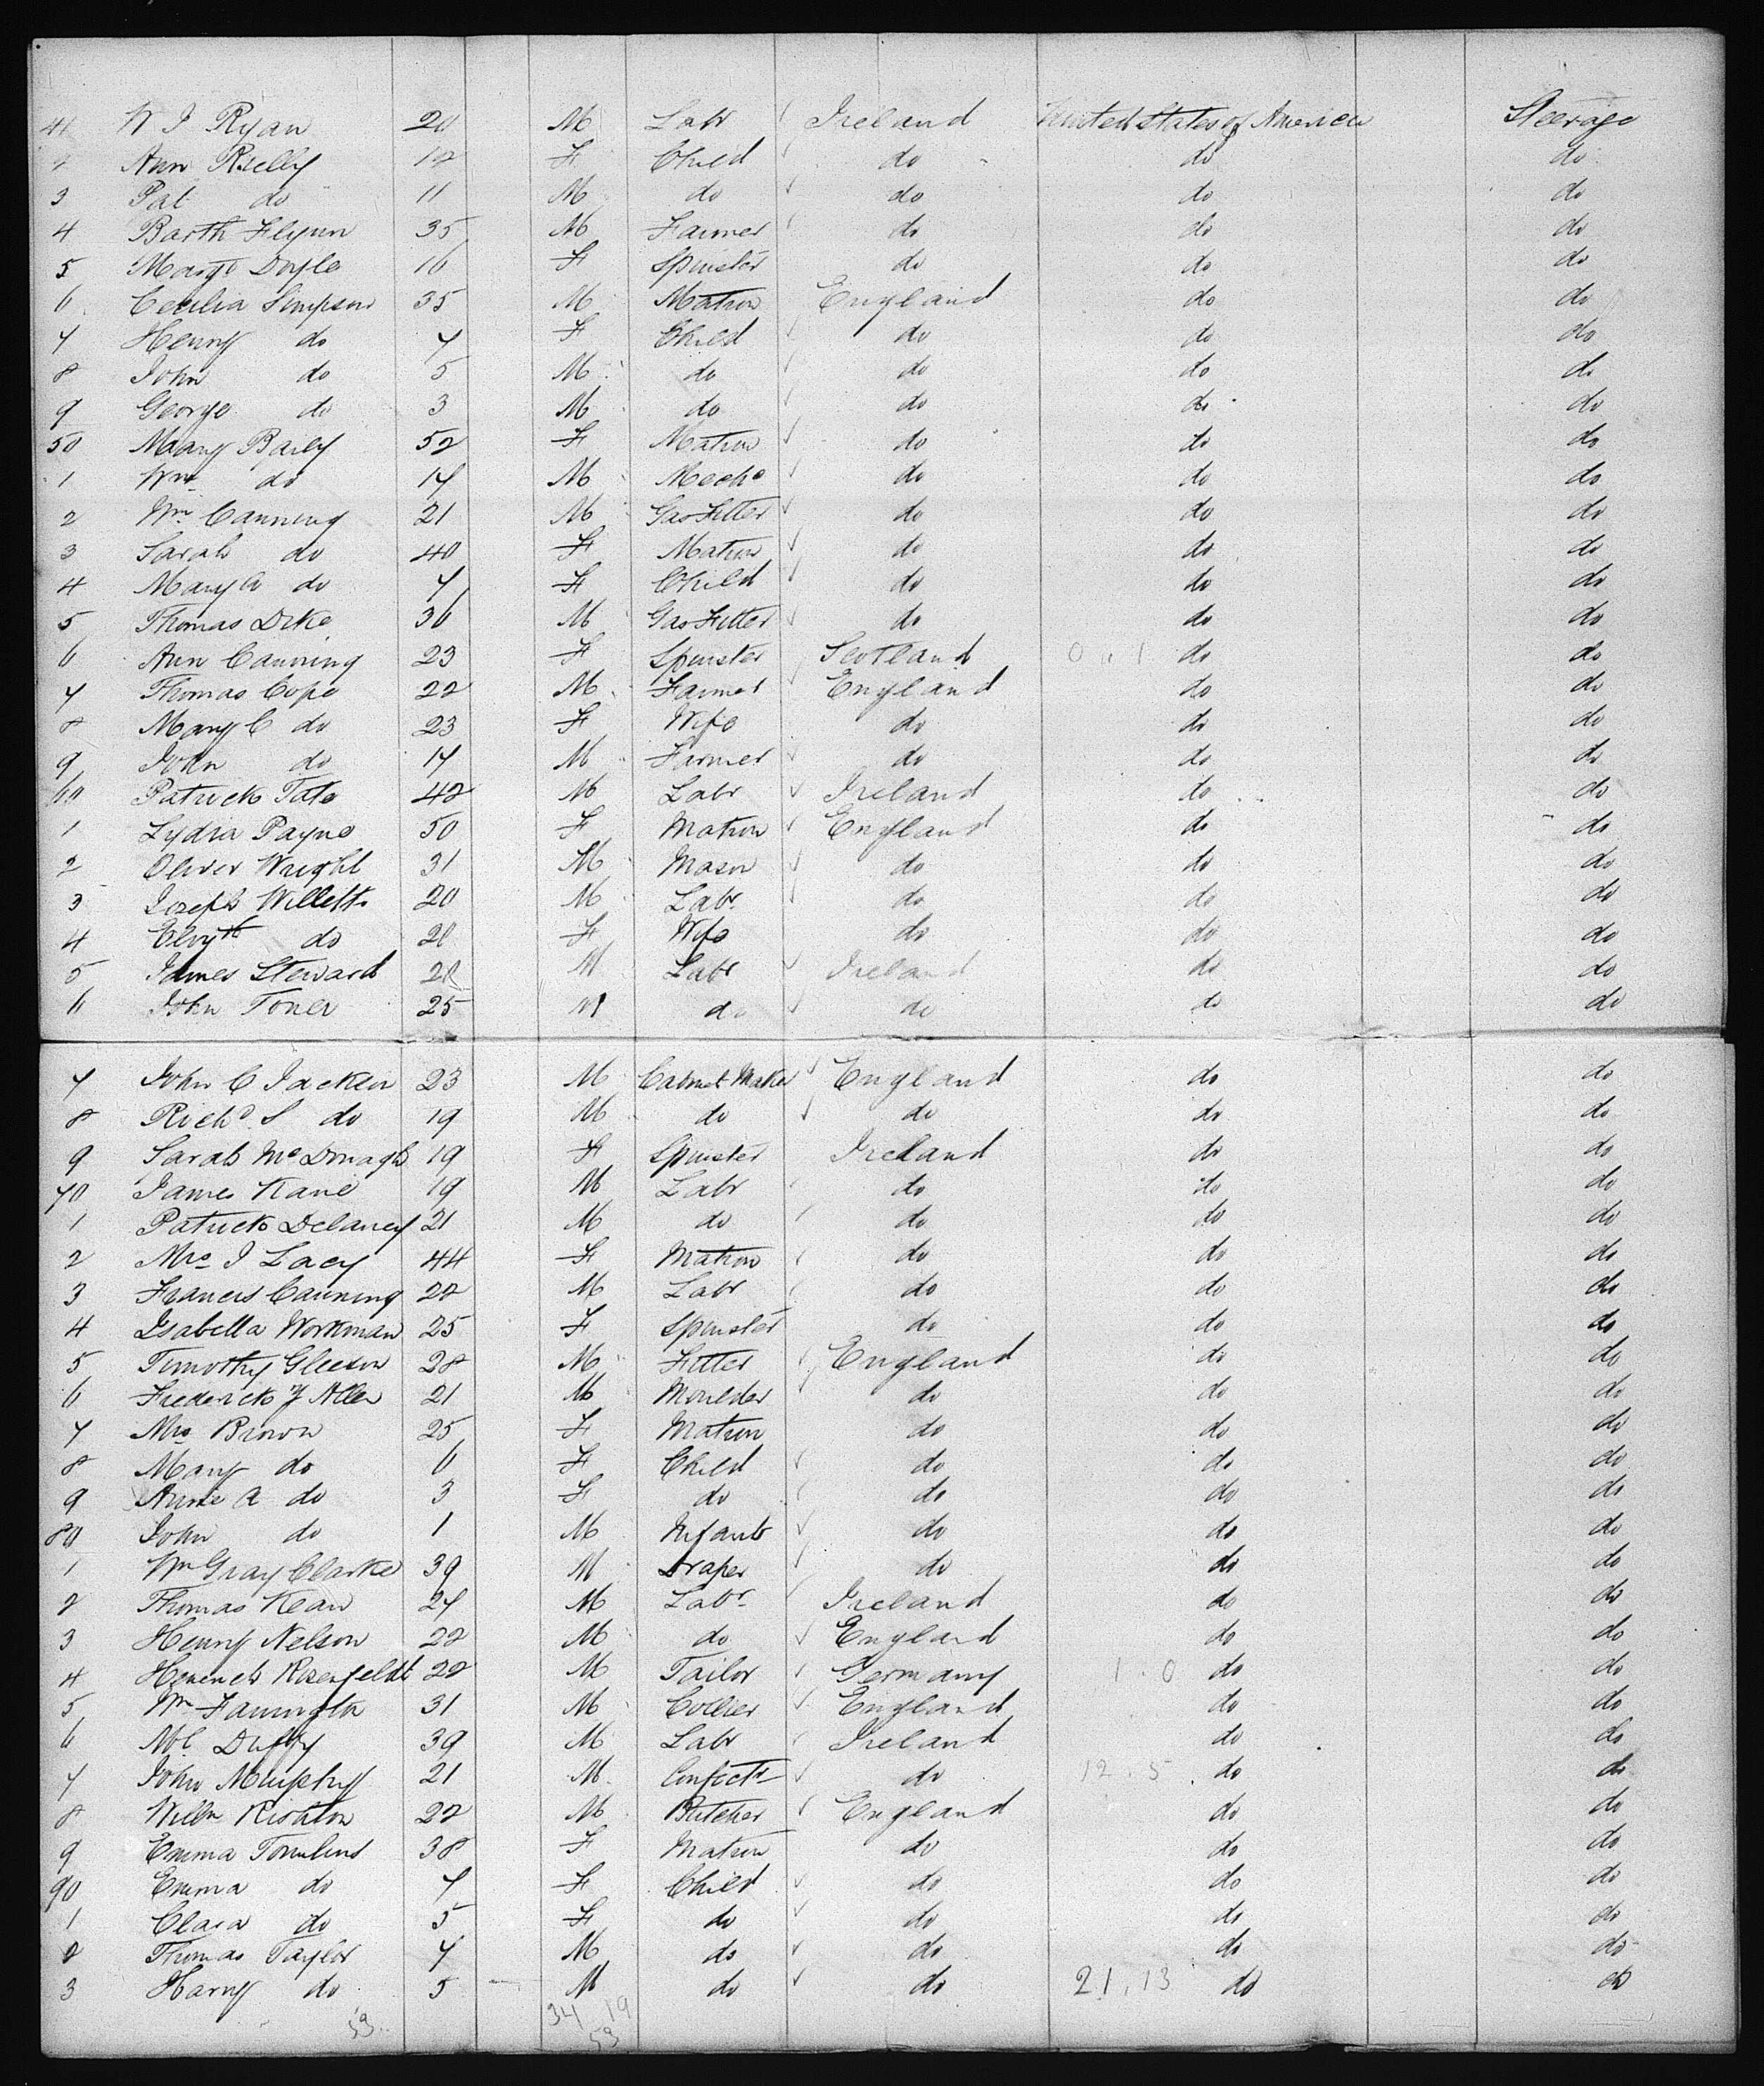 41 W J Ryan 20 M Labr Ireland United States of America Steerage
2 Ann Rielly 12 F Child do do do
3 Pat do 11 M do do do do
4 Barth Flynn 35 M Farmer do do do
5 Margt Doyle 16 F Spinster do do do
6 Cecilia Simpson 35 M Matron England do do
7 Henry do 7 F Child do do do
8 John do 5 M do do do do
9 George do 3 M do do do do
50 Mary Baily 52 F Matron do do do
1 Wm do 17 M Mechc do do do
2 Wm Canning 21 M Gas Fitter do do do
3 Sarah do 40 F Matron do do do
4 Mary A do 7 F Child do do do
5 Thomas Dike 36 M Gas Fitter do do do
6 Ann Canning 23 F Spinster Scotland 0 1 do do
7 Thomas Cope 22 M Farmer England do do
8 Mary C do 23 F Wife do do do
9 John do 17 M Farmer do do do
60 Patrick Tate 42 M Labr Ireland do do
1 Lydia Payne 50 F Matron England do do
2 Oliver Wright 31 M Mason do do do
3 Joseph Willetts 20 M Labr do do do
4 do F Wife do do do
5 James Steward M Labr Ireland do do
6 John Toner 25 M do do do do
7 John C Jackson 23 M Cabinet Maker England do do
8 Richd S do 19 M do do do do
9 Sarah McDonagh 19 F Spinster Ireland do do
70 James Kane 19 M Labr do do do
1 Patrick Delaney 21 M do do do do
2 Mrs J Lacy 44 F Matron do do do
3 Francis Canning 22 M Labr do do do
4 Isabella Workman 25 F Spinster do do do
5 Timothy Gleeson 28 M Fitter England do do
6 Frederick Allen 21 M Moulder do do do
7 Mrs Brown 25 F Matron do do do
8 Mary do 6 F Child do do do
9 Annie A do 3 F do do do do
80 John do 1 M Infant do do do
1 Wm Gray Clarke 39 M Draper do do do
2 Thomas Kean 27 M Labr Ireland do do
3 Henry Nelson 22 M do England do do
4 Rosenfeldt 22 M Tailor Germany 1 . 0 do do
5 Wm Farrington 31 M Collier England do do
6 Ml Duffy 39 M Labr Ireland do do
7 John Murphy 21 M Confectr do 12 . 5 do do
8 Willm Rishton 22 M Butcher England do do
9 Emma Tomlins 38 F Matron do do do
90 Emma do 7 F Child do do do
1 Clara do 5 F do do do do
2 Thomas Taylor 7 M do do do do
3 Harry do 5 M do do 21 . 13 do do
53 34 19
53